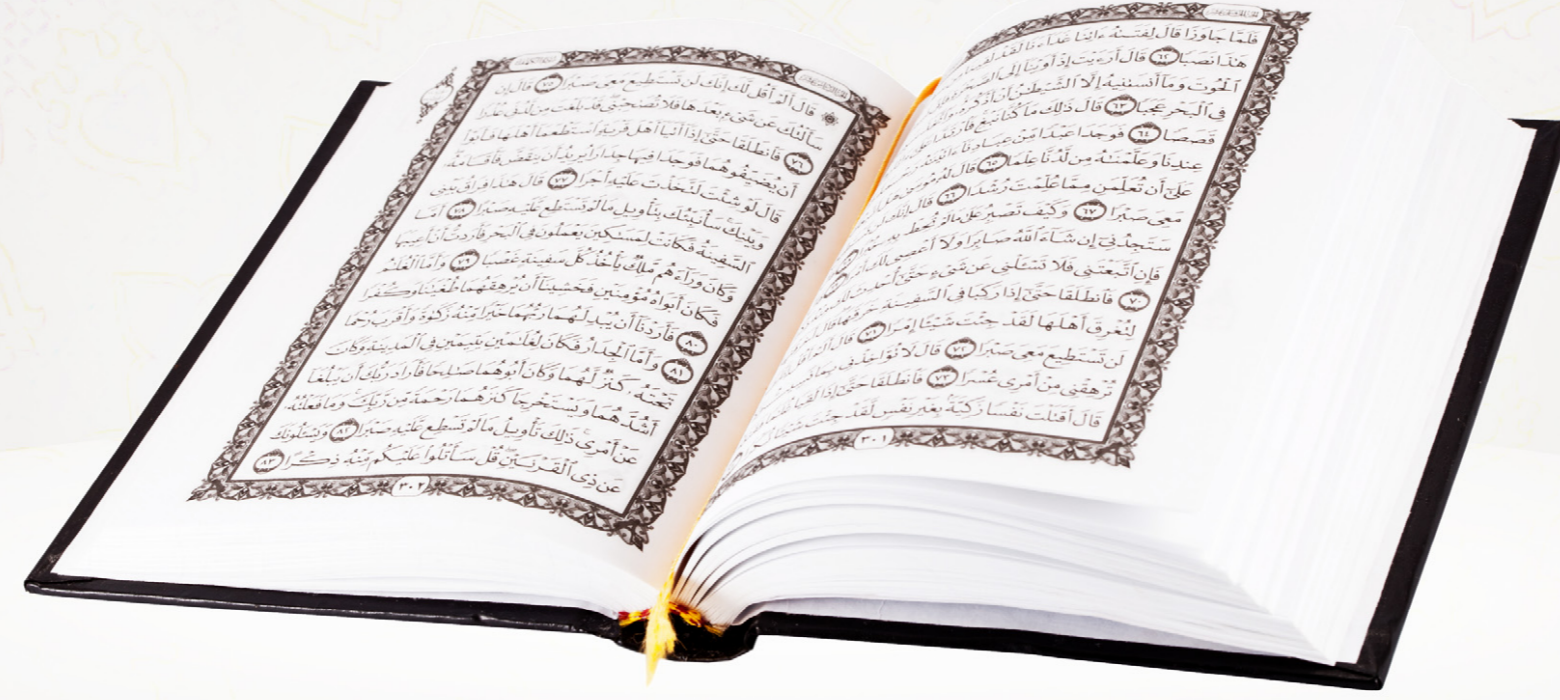 فَلَمَّا جَاوَزَا قَالَ لِفَتَىٰهُ ءَاتِنَا غَدَآءَنَا لَقَدْ لَقِينَا
هَٰذَا نَصَبًا ٦٢ قَالَ أَرَءَيْتَ إِذْ أَوَيْنَآ إِلَى الصَّخْرَةِ
الْحُوتَ وَمَآ أَنسَىٰنِيهُ إِلَّا الشَّيْطَٰنُ أَنْ أَذْكُرَهُۥ
فِي الْبَحْرِ عَجَبًا ٦٣ قَالَ ذَٰلِكَ مَا كُنَّا نَبْغِ فَارْتَدَّا
قَصَصًا ٦٤ فَوَجَدَا عَبْدًا مِّنْ عِبَادِنَآ ءَاتَيْنَٰهُ
عِندِنَا وَعَلَّمْنَٰهُ مِن لَّدُنَّا عِلْمًا ٦٥ قَالَ لَهُۥ مُوسَىٰ هَلْ
عَلَىٰٓ أَن تُعَلِّمَنِ مِمَّا عُلِّمْتَ رُشْدًا ٦٦ قَالَ إِنَّكَ لَن
مَعِيَ صَبْرًا ٦٧ وَكَيْفَ تَصْبِرُ عَلَىٰ مَا لَمْ تُحِطْ بِهِۦ
سَتَجِدُنِيٓ إِن شَآءَ اللَّهُ صَابِرًا وَلَآ أَعْصِي لَكَ أَمْرًا
فَإِنِ اتَّبَعْتَنِي فَلَا تَسْـَٔلْنِي عَن شَيْءٍ حَتَّىٰٓ أُحْدِثَ لَكَ
٧٠ فَانطَلَقَا حَتَّىٰٓ إِذَا رَكِبَا فِي السَّفِينَةِ خَرَقَهَا قَالَ
لِتُغْرِقَ أَهْلَهَا لَقَدْ جِئْتَ شَيْـًٔا إِمْرًا ٧١ قَالَ أَلَمْ أَقُلْ
لَن تَسْتَطِيعَ مَعِيَ صَبْرًا ٧٢ قَالَ لَا تُؤَاخِذْنِي بِمَا نَسِيتُ
تُرْهِقْنِي مِنْ أَمْرِي عُسْرًا ٧٣ فَانطَلَقَا حَتَّىٰٓ إِذَا لَقِيَا
قَالَ أَقَتَلْتَ نَفْسًا زَكِيَّةً بِغَيْرِ نَفْسٍ لَّقَدْ جِئْتَ شَيْـًٔا
٣٠١
۞ قَالَ أَلَمْ أَقُل لَّكَ إِنَّكَ لَن تَسْتَطِيعَ مَعِيَ صَبْرًا ٧٥ قَالَ إِن
سَأَلْتُكَ عَن شَيْءٍ بَعْدَهَا فَلَا تُصَٰحِبْنِي قَدْ بَلَغْتَ مِن لَّدُنِّي عُذْرًا
٧٦ فَانطَلَقَا حَتَّىٰٓ إِذَآ أَتَيَآ أَهْلَ قَرْيَةٍ اسْتَطْعَمَآ أَهْلَهَا فَأَبَوْا
أَن يُضَيِّفُوهُمَا فَوَجَدَا فِيهَا جِدَارًا يُرِيدُ أَن يَنقَضَّ فَأَقَامَهُۥ
قَالَ لَوْ شِئْتَ لَتَّخَذْتَ عَلَيْهِ أَجْرًا ٧٧ قَالَ هَٰذَا فِرَاقُ بَيْنِي
وَبَيْنِكَ سَأُنَبِّئُكَ بِتَأْوِيلِ مَا لَمْ تَسْتَطِع عَّلَيْهِ صَبْرًا ٧٨ أَمَّا
السَّفِينَةُ فَكَانَتْ لِمَسَٰكِينَ يَعْمَلُونَ فِي الْبَحْرِ فَأَرَدتُّ أَنْ أَعِيبَهَا
وَكَانَ وَرَآءَهُم مَّلِكٌ يَأْخُذُ كُلَّ سَفِينَةٍ غَصْبًا ٧٩ وَأَمَّا الْغُلَٰمُ
فَكَانَ أَبَوَاهُ مُؤْمِنَيْنِ فَخَشِينَآ أَن يُرْهِقَهُمَا طُغْيَٰنًا وَكُفْرًا
٨٠ فَأَرَدْنَآ أَن يُبْدِلَهُمَا رَبُّهُمَا خَيْرًا مِّنْهُ زَكَوٰةً وَأَقْرَبَ رُحْمًا
٨١ وَأَمَّا الْجِدَارُ فَكَانَ لِغُلَٰمَيْنِ يَتِيمَيْنِ فِي الْمَدِينَةِ وَكَانَ
تَحْتَهُۥ كَنزٌ لَّهُمَا وَكَانَ أَبُوهُمَا صَٰلِحًا فَأَرَادَ رَبُّكَ أَن يَبْلُغَآ
أَشُدَّهُمَا وَيَسْتَخْرِجَا كَنزَهُمَا رَحْمَةً مِّن رَّبِّكَ وَمَا فَعَلْتُهُۥ
عَنْ أَمْرِي ذَٰلِكَ تَأْوِيلُ مَا لَمْ تَسْطِع عَّلَيْهِ صَبْرًا ٨٢ وَيَسْـَٔلُونَكَ
عَن ذِي الْقَرْنَيْنِ قُلْ سَأَتْلُوا عَلَيْكُم مِّنْهُ ذِكْرًا ٨٣
٣٠٢